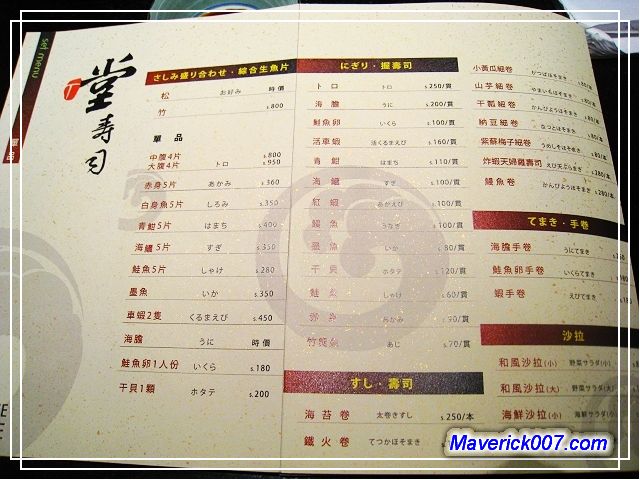 set menu
單品
堂壽司
さしみ盛り合わせ・綜合生魚片
松 お好み 時價
竹 $800
單品
中腹4片 $800
大腹4片 トロ $950
赤身5片 あかみ $360
白身魚5片 しろみ $350
青魽5片 はまち $400
海鱺5片 すぎ $350
鮭魚5片 しゃけ $280
墨魚 いか $350
車蝦2隻 くるまえび $450
海膽 うに 時價
鮭魚卵1人份 いくら $180
干貝1顆 ホタテ $200
にぎり・握壽司
トロ トロ $250/貫
海膽 うに $200/貫
鮭魚卵 いくら $100/貫
活車蝦 活くるまえび $160/貫
青魽 はまち $110/貫
海鱺 すぎ $100/貫
紅蝦 あかえび $100/貫
鰻魚 うなぎ $100/貫
墨魚 いか $80/貫
干貝 ホタテ $120/貫
鮭魚 しゃけ $60/貫
赤身 あかみ $90/貫
竹筴魚 あじ $70/貫
すし・壽司
海苔卷 太卷きすし $250/本
鐵火卷 てつかほそまき
小黃瓜細卷 かつぱほそまき
山芋細卷 やまいもほそまき $80/本
干瓢細卷 かんぴょうほそまき $80/本
納豆細卷 なつとほそまき
紫蘇梅子細卷 うめしそほそまき
炸蝦天婦羅壽司 えび天ぷらまき
鰻魚卷
てまき・手卷
海膽手卷 うにてまき
鮭魚卵手卷 いくらてまき
蝦手卷 えびてまき
沙拉
和風沙拉(小) 野菜サラダ(小)
和風沙拉(大) 野菜サラダ(大)
海鮮沙拉(小) 海鮮サラダ(小)
Maverick007.com